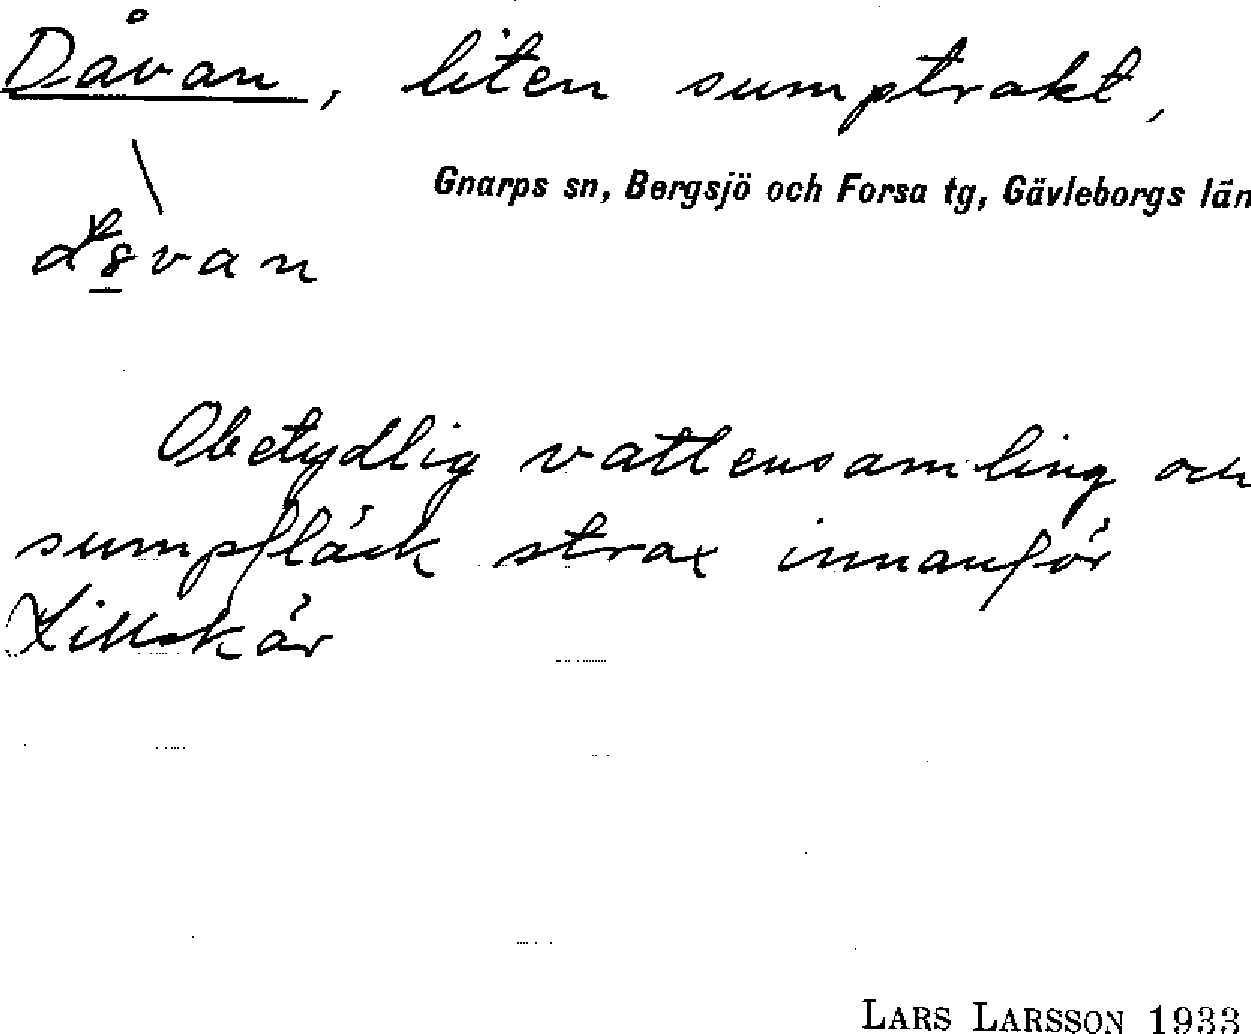 Dåvan, liten sumptrakt,
Gnarps sn, Bergsjö och Forsa tg, Gävleborgs län
Obetydlig vattensamling och
sumpfläck strax innanför
Lillskär
LARS LARSSON 1933